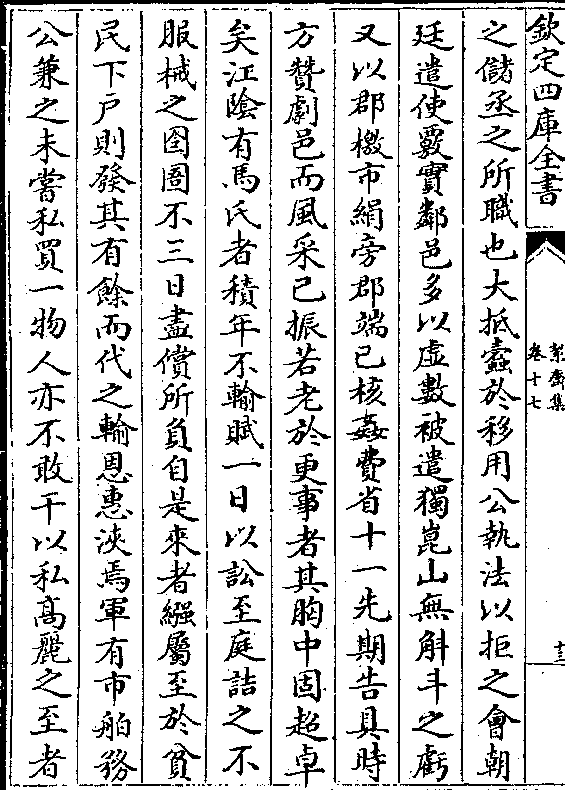 欽定四庫全書
絜齋集
卷十七
十三
之儲丞之所職也大抵蠧於移用公執法以拒之會朝
廷遣使覈實鄰邑多以虛數被遣獨崑山無斛斗之虧
又以郡檄市絹旁郡端已核姦費省十一先期告具時
方贊劇邑而風采已振若老於更事者其胸中固超卓
矣江陰有馬氏者積年不輸賦一日以訟至庭詰之不
服械之囹圄不三日盡償所負自是來者繦屬至於貧
民下户則發其有餘而代之輸恩惠浹焉軍有市舶務
公兼之未嘗私買一物人亦不敢干以私高麗之至者